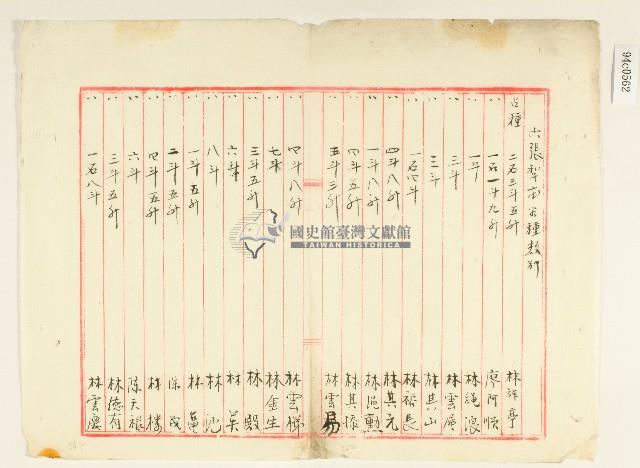 六張犁庄谷種數部
谷種 二石三斗五升 林祥亭
〃 一石一斗九升 廖阿順
〃 一斗 林繩浪
〃 三斗 林雲屏
〃 三斗 林其山
〃 一石〇斗 林裕長
〃 四斗八升 林其元
〃 一斗八升 林西勲
〃 四斗五升 林其添
〃 五斗三升 林雲易
〃 四斗八升 林雲梯
〃 七斗 林金生
〃 三斗五升 林殿
〃 六斗 林英
〃 八斗 林
〃 一斗五升 林龜
〃 二斗五升 陳茂
〃 四斗五升 林樓
〃 六斗 陳天祿
〃 三斗五升 林德有
〃 一石八斗 林雲慶
國史館臺灣文獻館
TAIWAN HISTORICA
94c0562